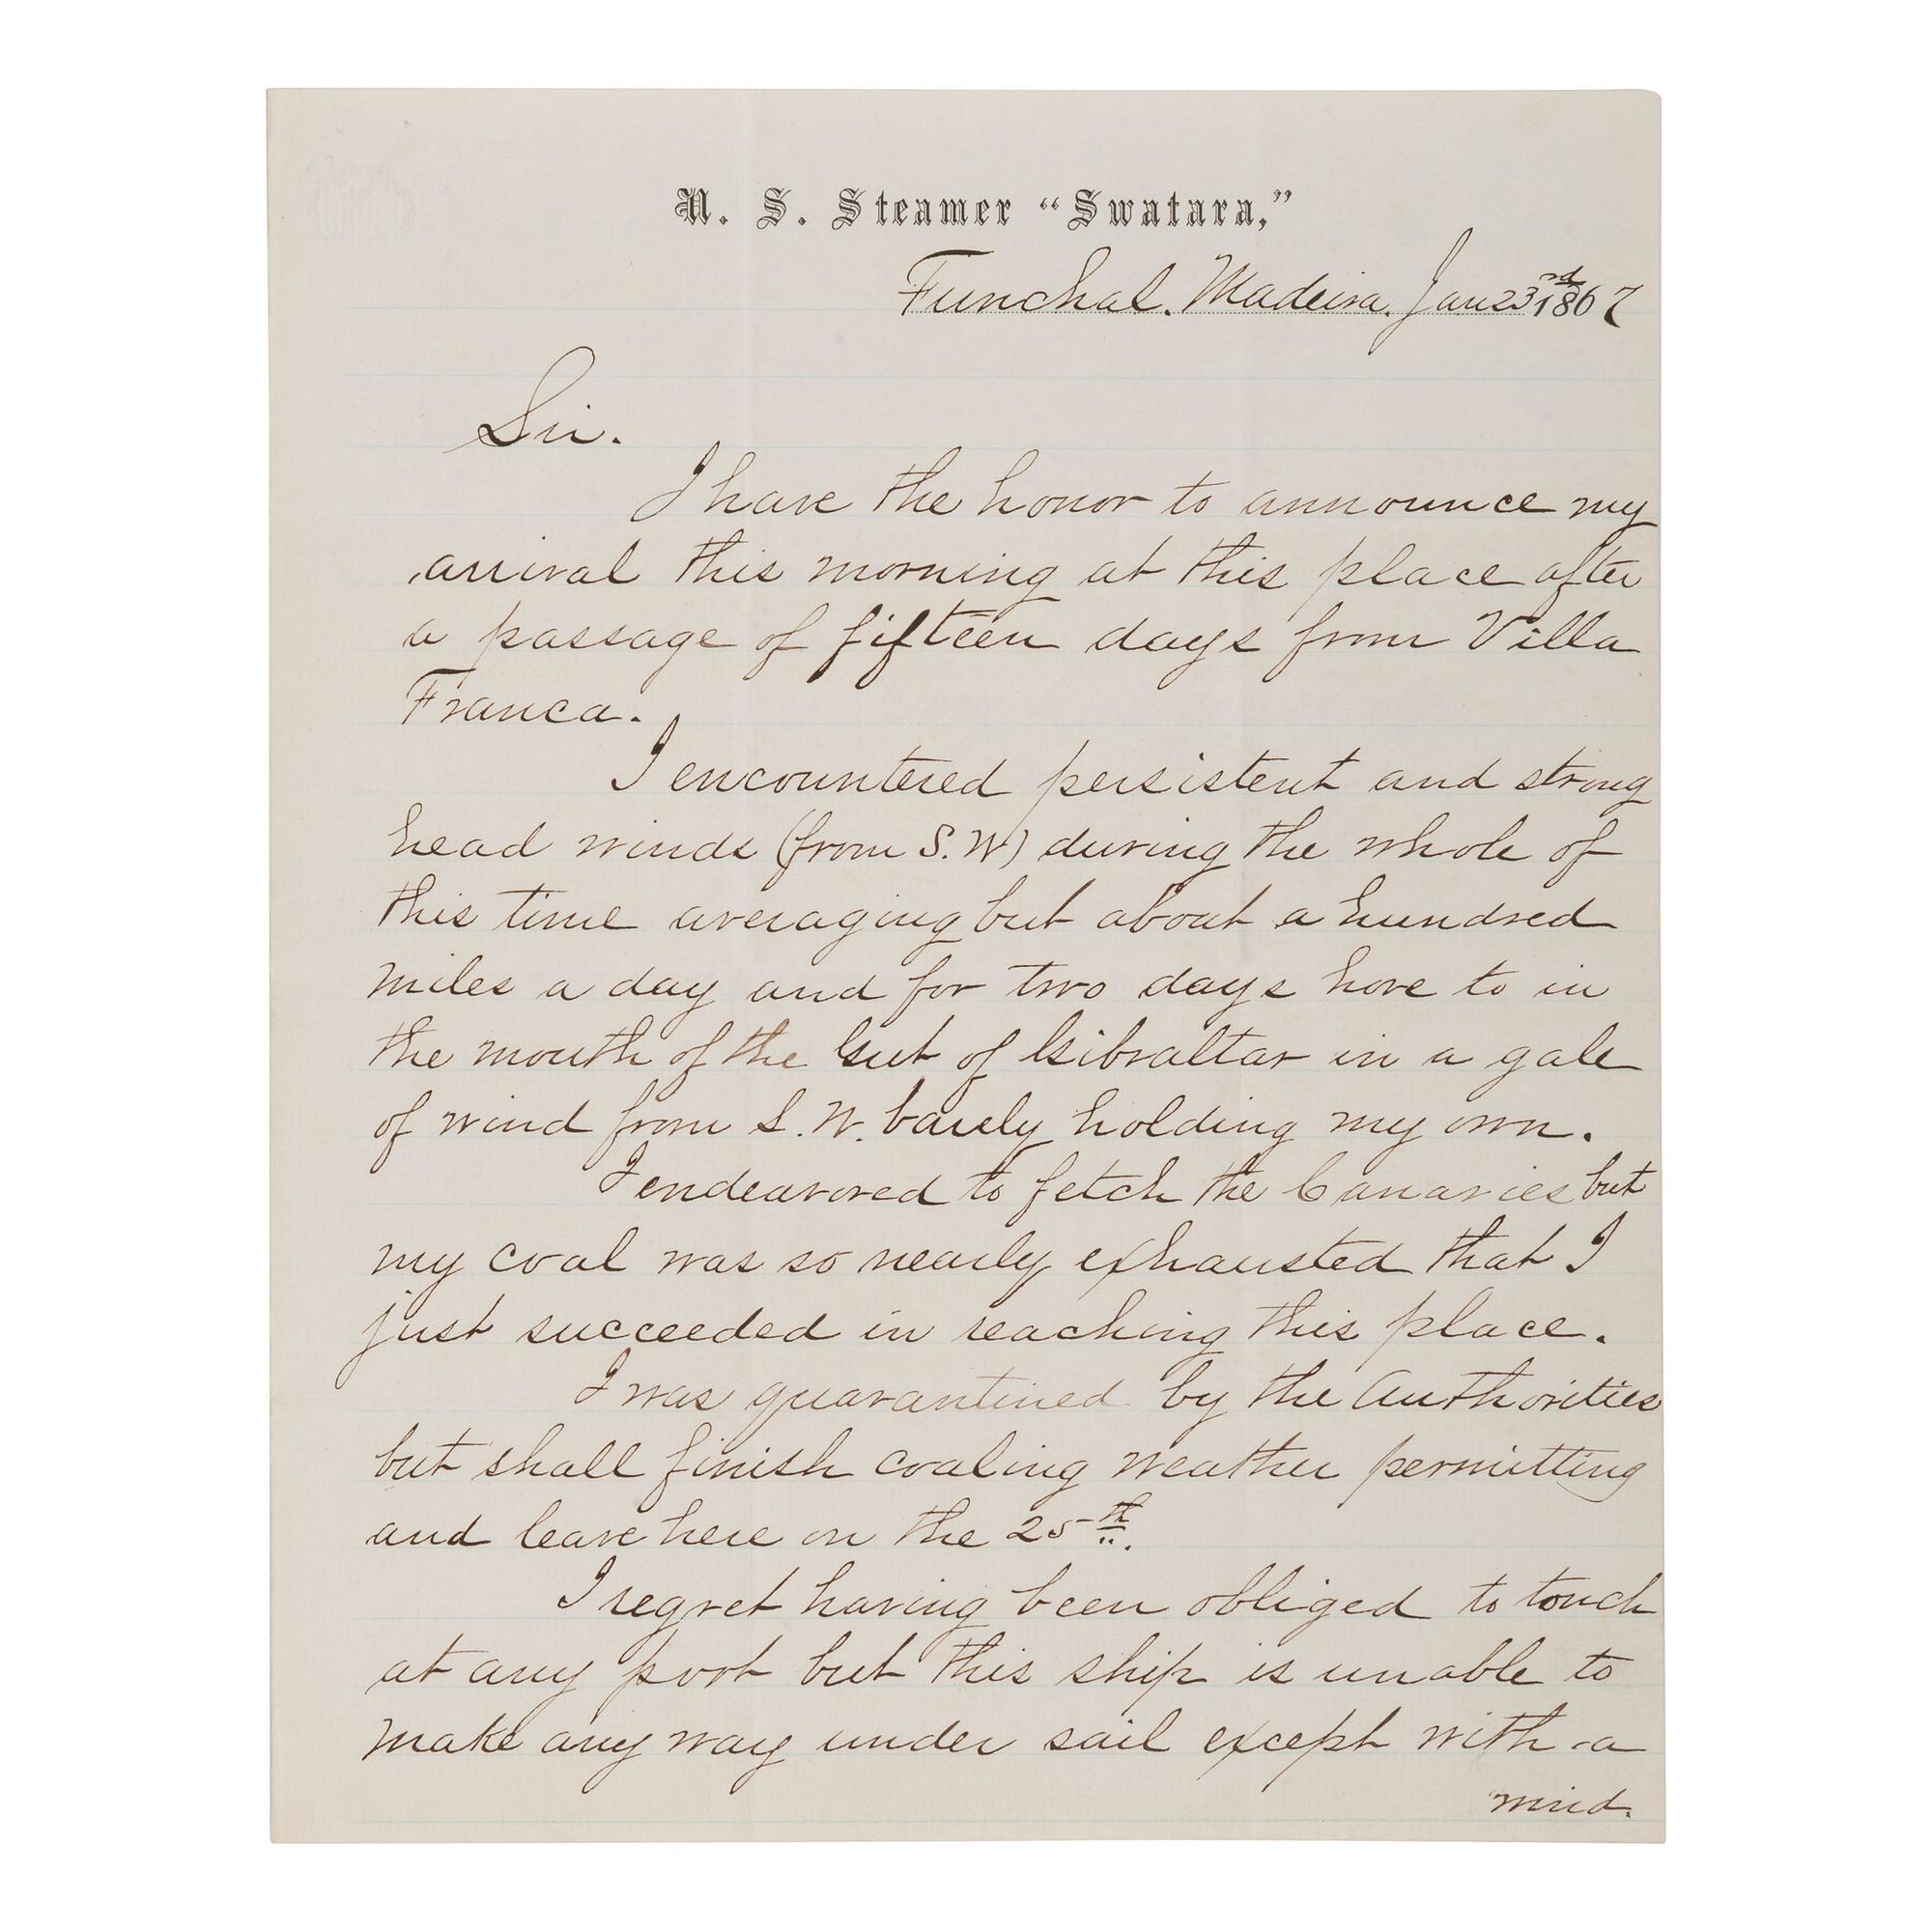 U. S. Steamer "Swatara,"
Funchal. Madeira. Jan 23rd 1867
Sir.
I have the honor to announce my
arrival this morning at this place after
a passage of fifteen days from Villa
Franca.
I encountered persistent and strong
head winds (from S. W) during the whole of
this time averaging but about a hundred
miles a day and for two days hove to in
the mouth of the Gut of Gibraltar in a gale
of wind from S. W. barely holding my own.
I endeavored to fetch the Canaries but
my coal was so nearly exhausted that I
just succeeded in reaching this place.
I was quarantined by the Authorities
but shall finish coaling weather permitting
and leave here on the 25th.
I regret having been obliged to touch
at any port but this ship is unable to
make any way under sail except with a
wind.